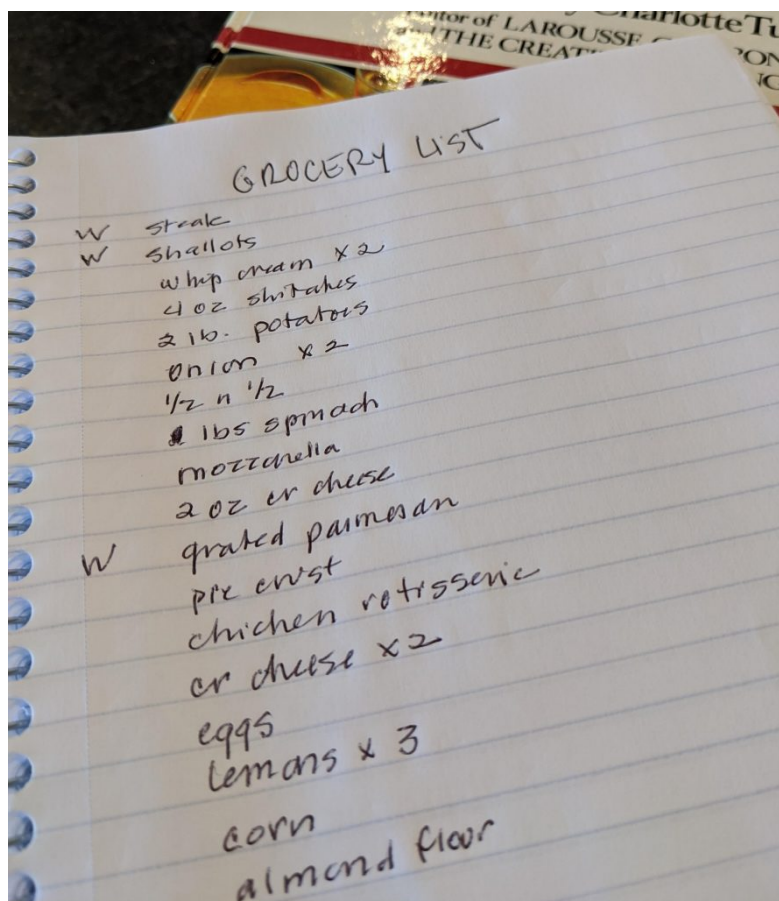 Charlotte Tu
Editor of LAROUSSE
and THE CREATI
GROCERY LIST
W steak
W shallots
whip cream x 2
4 oz shitakes
2 lb. potatoes
onion x 2
1/2 n 1/2
lbs spinach
mozzarella
2 oz cr cheese
W grated parmesan
pie crust
chicken rotisserie
cr cheese x 2
eggs
lemons x 3
corn
almond flour